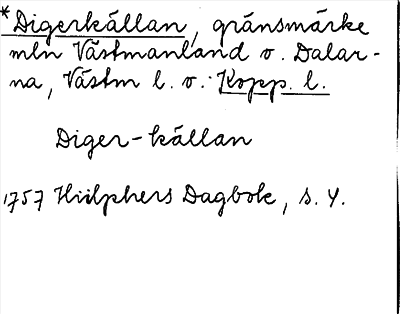 *Digerkällan, gränsmärke
mln Västmanland o. Dalar-
na, Västm l. o. Kopp. l.
Diger-källan
1757 Hülphers Dagbok, s. 4.